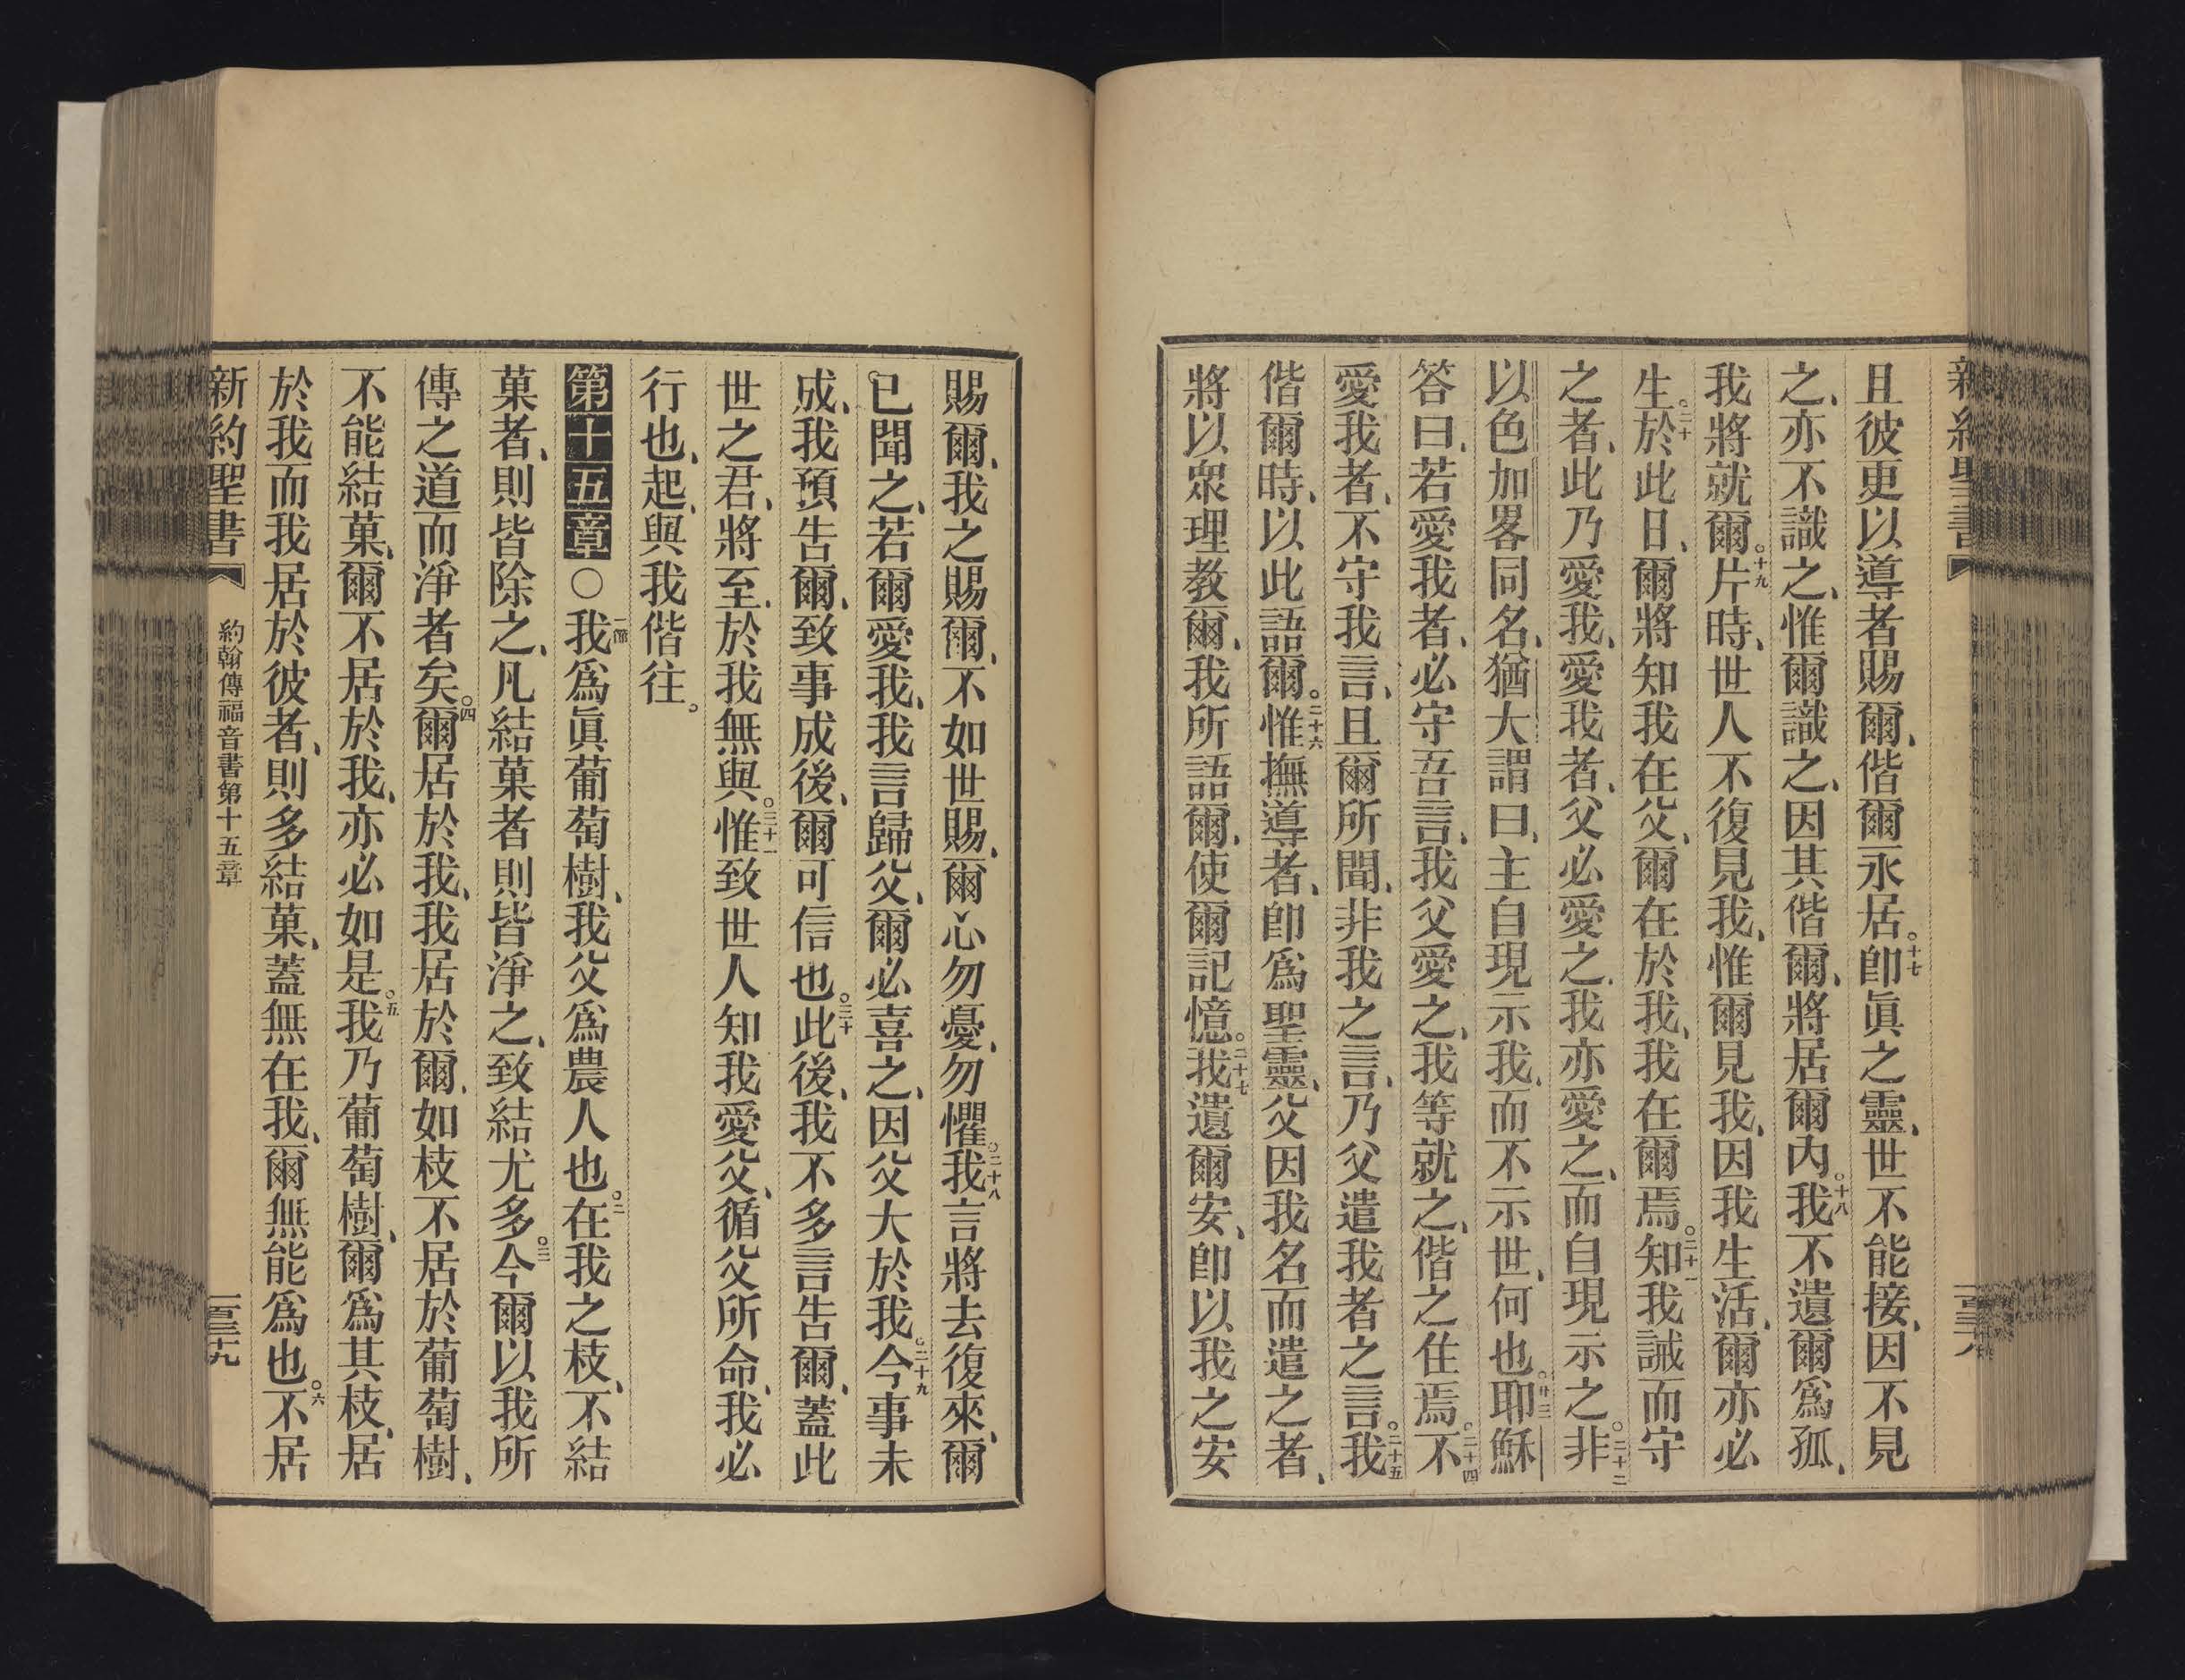 新約聖書
且彼更以導者賜爾、偕爾永居。十七卽眞之靈、世不能接、因不見
之、亦不識之、惟爾識之、因其偕爾、將居爾內。十八我不遺爾爲孤、
我將就爾。十九片時、世人不復見我、惟爾見我、因我生活、爾亦必
生。二十於此日、爾將知我在父、爾在於我、我在爾焉。二十一知我誡而守
之者、此乃愛我、愛我者、父必愛之、我亦愛之、而自現示之。二十二非
以色加畧同名、猶大謂曰、主自現示我、而不示世、何也。廿三耶穌
答曰、若愛我者、必守吾言、我父愛之、我等就之、偕之住焉。二十四不
愛我者、不守我言、且爾所聞、非我之言、乃父遣我者之言。二十五我
偕爾時、以此語爾。二十六惟撫導者、卽爲聖靈、父因我名而遣之者、
將以衆理教爾、我所語爾、使爾記憶。二十七我遺爾安、卽以我之安
賜爾、我之賜爾、不如世賜、爾心勿憂、勿懼。二十八我言將去復來、爾
已聞之、若爾愛我、我言歸父、爾必喜之、因父大於我。二十九今事未
成、我預告爾、致事成後、爾可信也。三十此後、我不多言告爾、蓋此
世之君、將至、於我無與。三十一惟致世人知我愛父、循父所命、我必
行也、起、與我偕往。
第十五章○一節我爲眞葡萄樹、我父爲農人也。二在我之枝、不結
菓者、則皆除之、凡結菓者則皆淨之、致結尤多。三今爾以我所
傳之道而淨者矣。四爾居於我、我居於爾、如枝不居於葡萄樹、
不能結菓、爾不居於我、亦必如是。五我乃葡萄樹、爾爲其枝、居
於我而我居於彼者、則多結菓、蓋無在我、爾無能爲也。六不居
新約聖書 約翰傳福音書第十五章 一百三十九